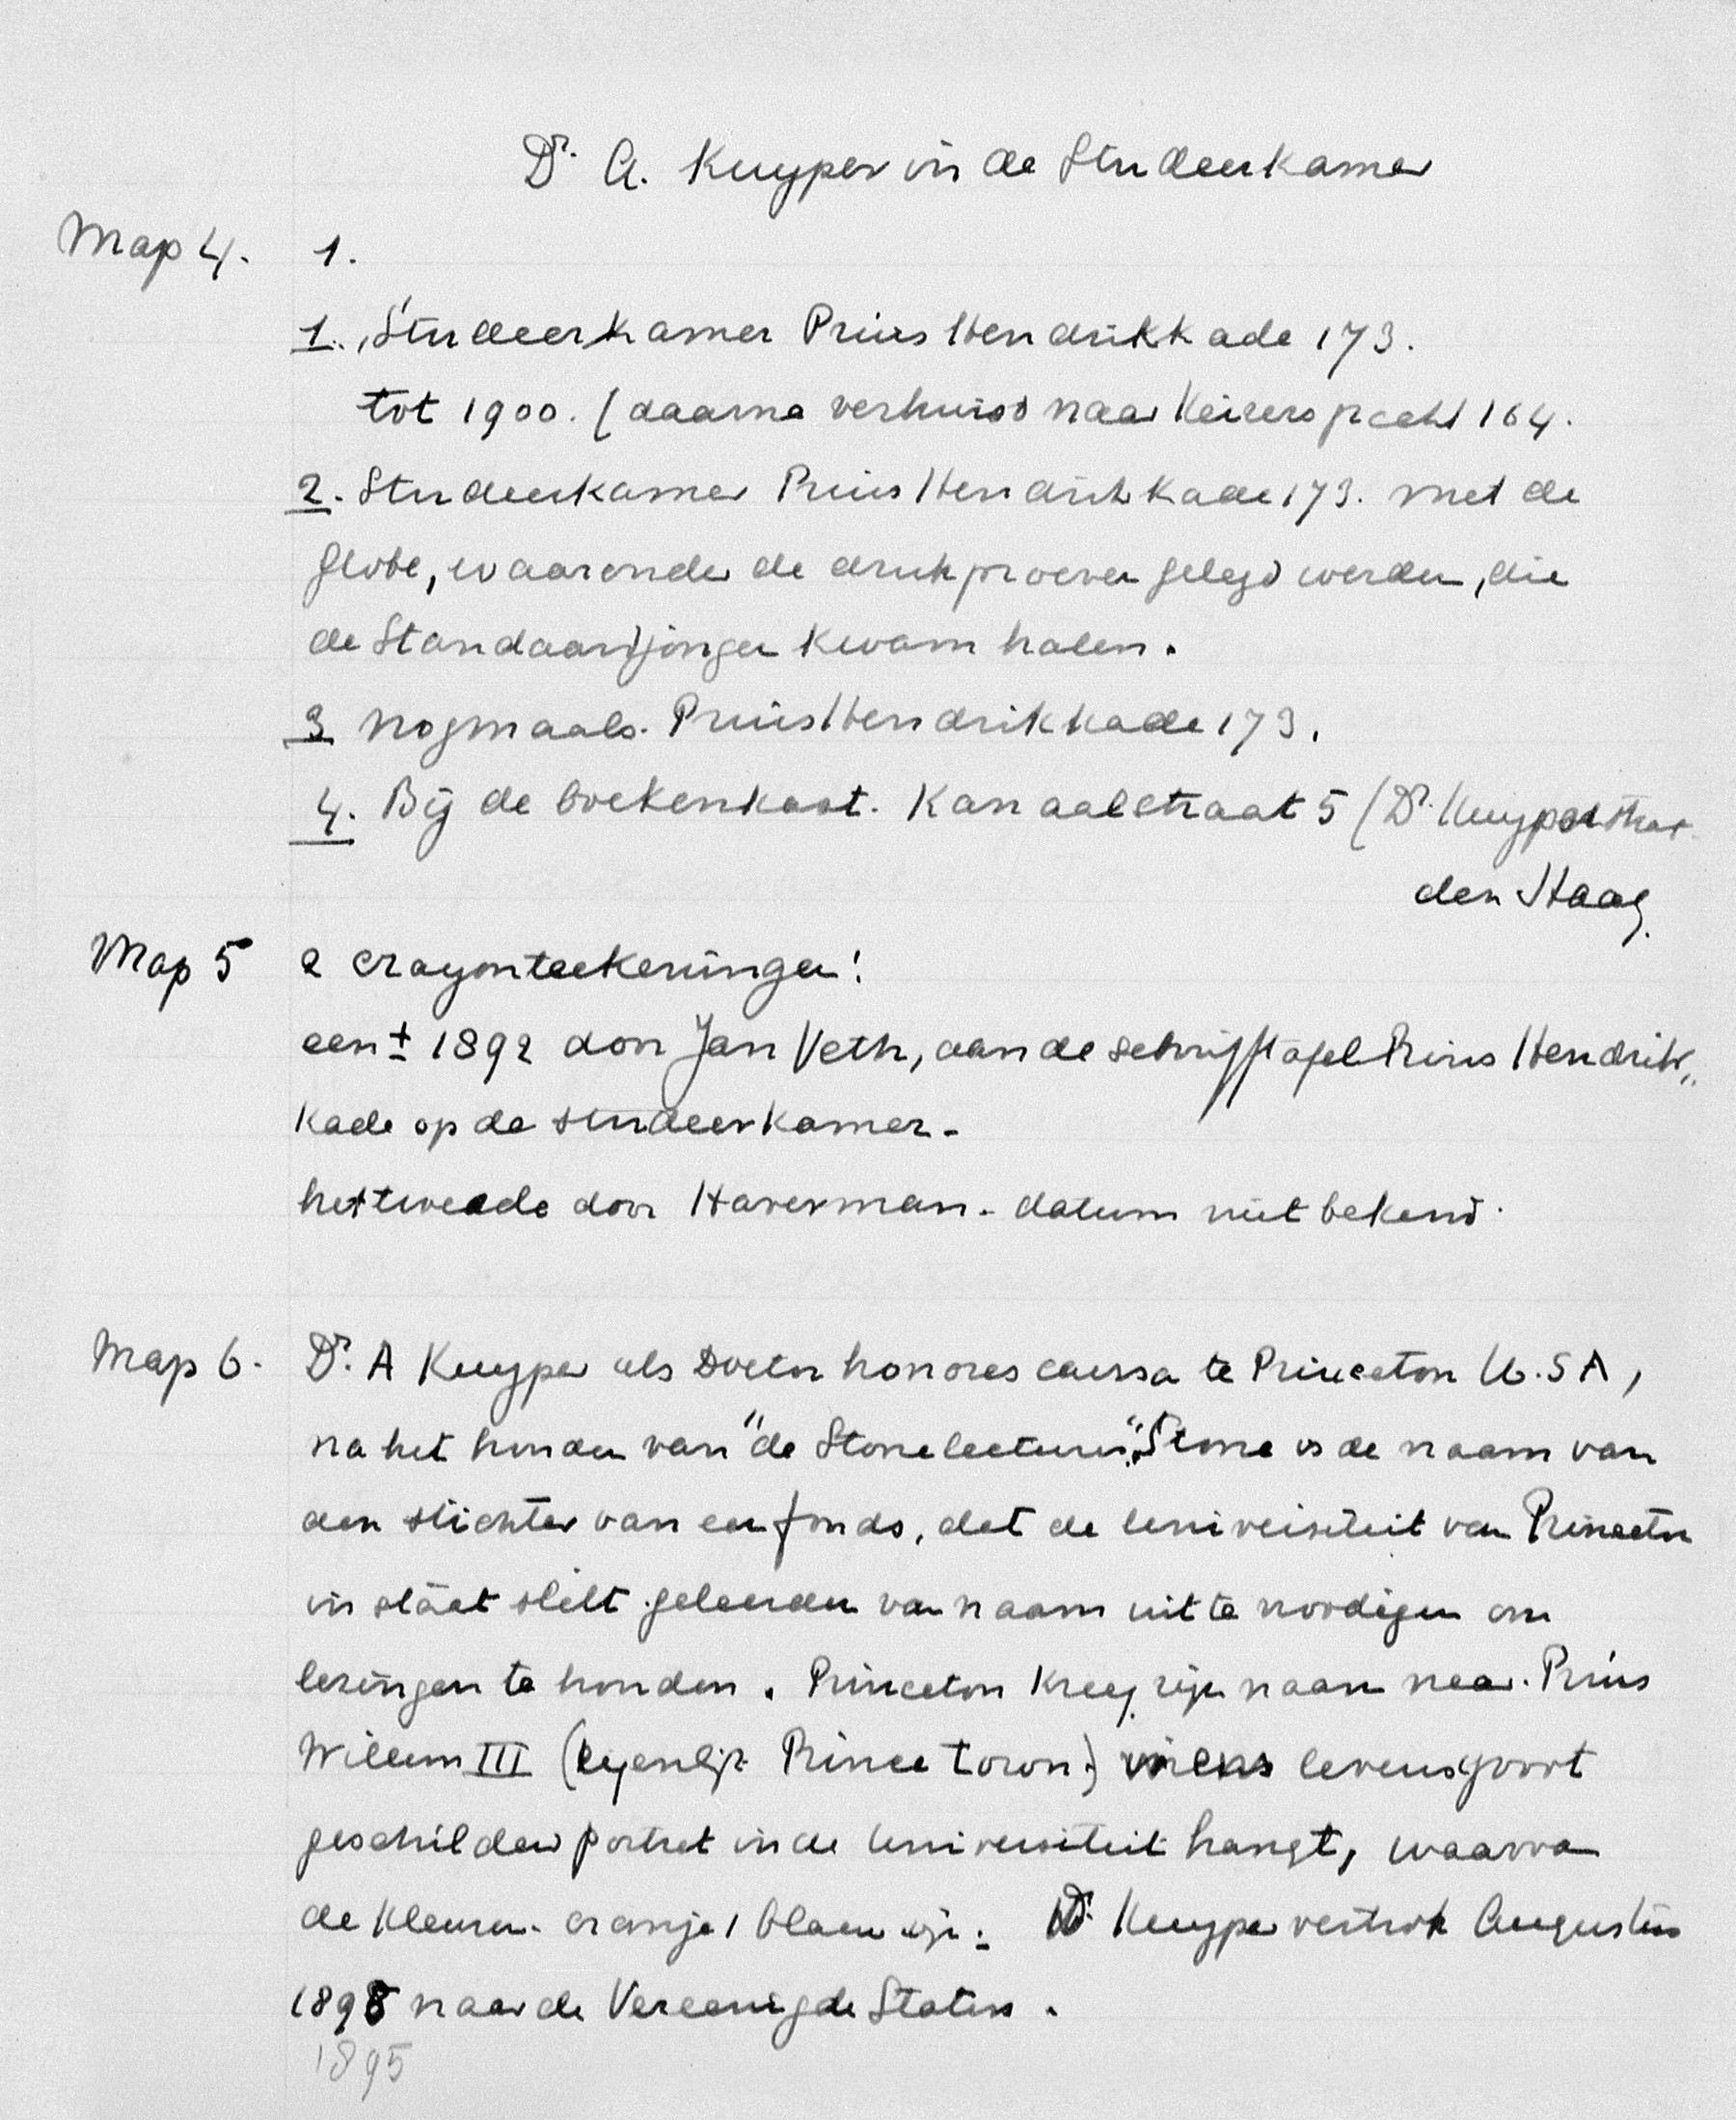 Dr. A. Kuyper in de Studeerkamer
Map 4. 1.
1. Studeerkamer Prins Hendrikkade 173.
tot 1900. (daarna verhuisd naar Keizersgracht 164.
2. Studeerkamer Prins Hendrikkade 173. met de
globe, waaronder de drukproeven gelegd werden, die
de Standaardjongen kwam halen.
3 nogmaals. Prins Hendrikkade 173.
4. Bij de boekenkast. Kanaalstraat 5 (Dr. Kuyperstraat
den Haag.
Map 5 2 crayonteekeningen:
een ± 1892 door Jan Veth, aan de schrijftafel Prins Hendrik„
kade op de studeerkamer.
het tweede door Haverman - datum niet bekend.
Map 6. Dr. A Kuyper als Doctor honores causa te Princeton U.S A,
na het houden van "de Stone lectures". Stone is de naam van
den stichter van een fonds, dat de Universiteit van Princeton
in staat stelt geleerden van naam uit te noodigen om
lezingen te houden. Princeton kreeg zijn naam naar. Prins
Willem III (eigenlijk Prince town.) wiens levensgroot
geschilderd portret in de Universiteit hangt, waarvan
de kleuren. oranje / blauw zijn. Dr. Kuyper vertrok Augustus
1898 naar de Vereenigde Staten.
1895